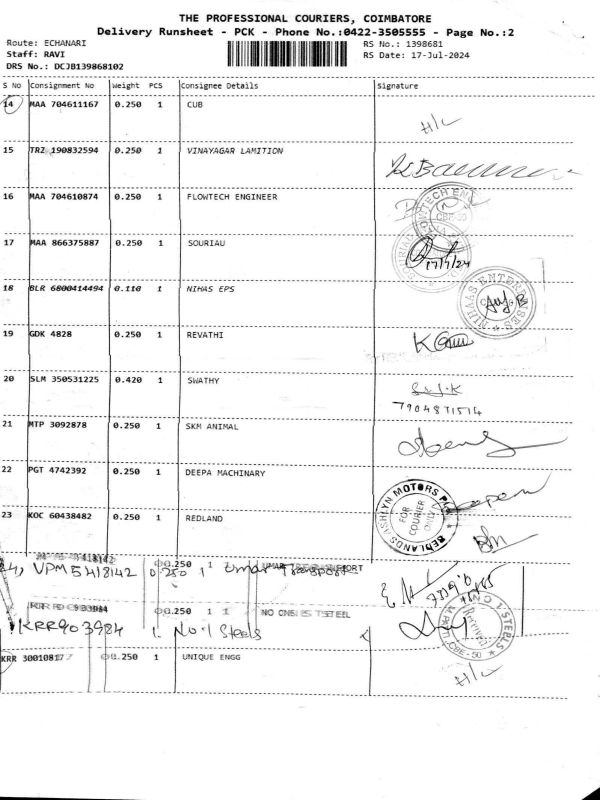 THE PROFESSIONAL COURIERS, COIMBATORE
Delivery Runsheet - PCK - Phone No.:0422-3505555 - Page No.:2
Route: ECHANARI
Staff: RAVI
DRS No.: DCJB139868102
RS No.: 1398681
RS Date: 17-Jul-2024
S No Consignment No Weight PCS Consignee Details Signature
14 MAA 704611167 0.250 1 CUB H/L
15 TRZ 190832594 0.250 1 VINAYAGAR LAMITION
16 MAA 704610874 0.250 1 FLOWTECH ENGINEER
17 MAA 866375887 0.250 1 SOURIAU 17/7/24
18 BLR 6800414494 0.110 1 NIHAS EPS
19 GDK 4828 0.250 1 REVATHI
20 SLM 350531225 0.420 1 SWATHY
7904871514
21 MTP 3092878 0.250 1 SKM ANIMAL
22 PGT 4742392 0.250 1 DEEPA MACHINARY
23 KOC 60438482 0.250 1 REDLAND
FOR COURIER ONLY
0.250 1
VPM 5418142 0.250 1 Umar Transport
0.250 1
KRR903984 1 No.1 Steels
KRR 300108177 0.250 1 UNIQUE ENGG H/L